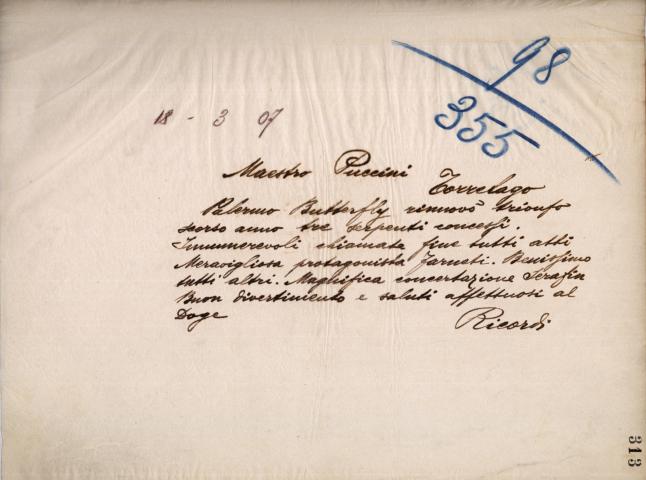 98
355
18 - 3 07
Maestro Puccini Torrelago
Palermo Butterfly rinnovò trionfo
scorso anno tre serpenti concessi.
Innumerevoli chiamate fine tutti atti
Meravigliosa protagonista Farneti. Benissimo
tutti altri. Magnifica concertazione Serafin
Buon divertimento e saluti affettuosi al
Doge
Ricordi
313